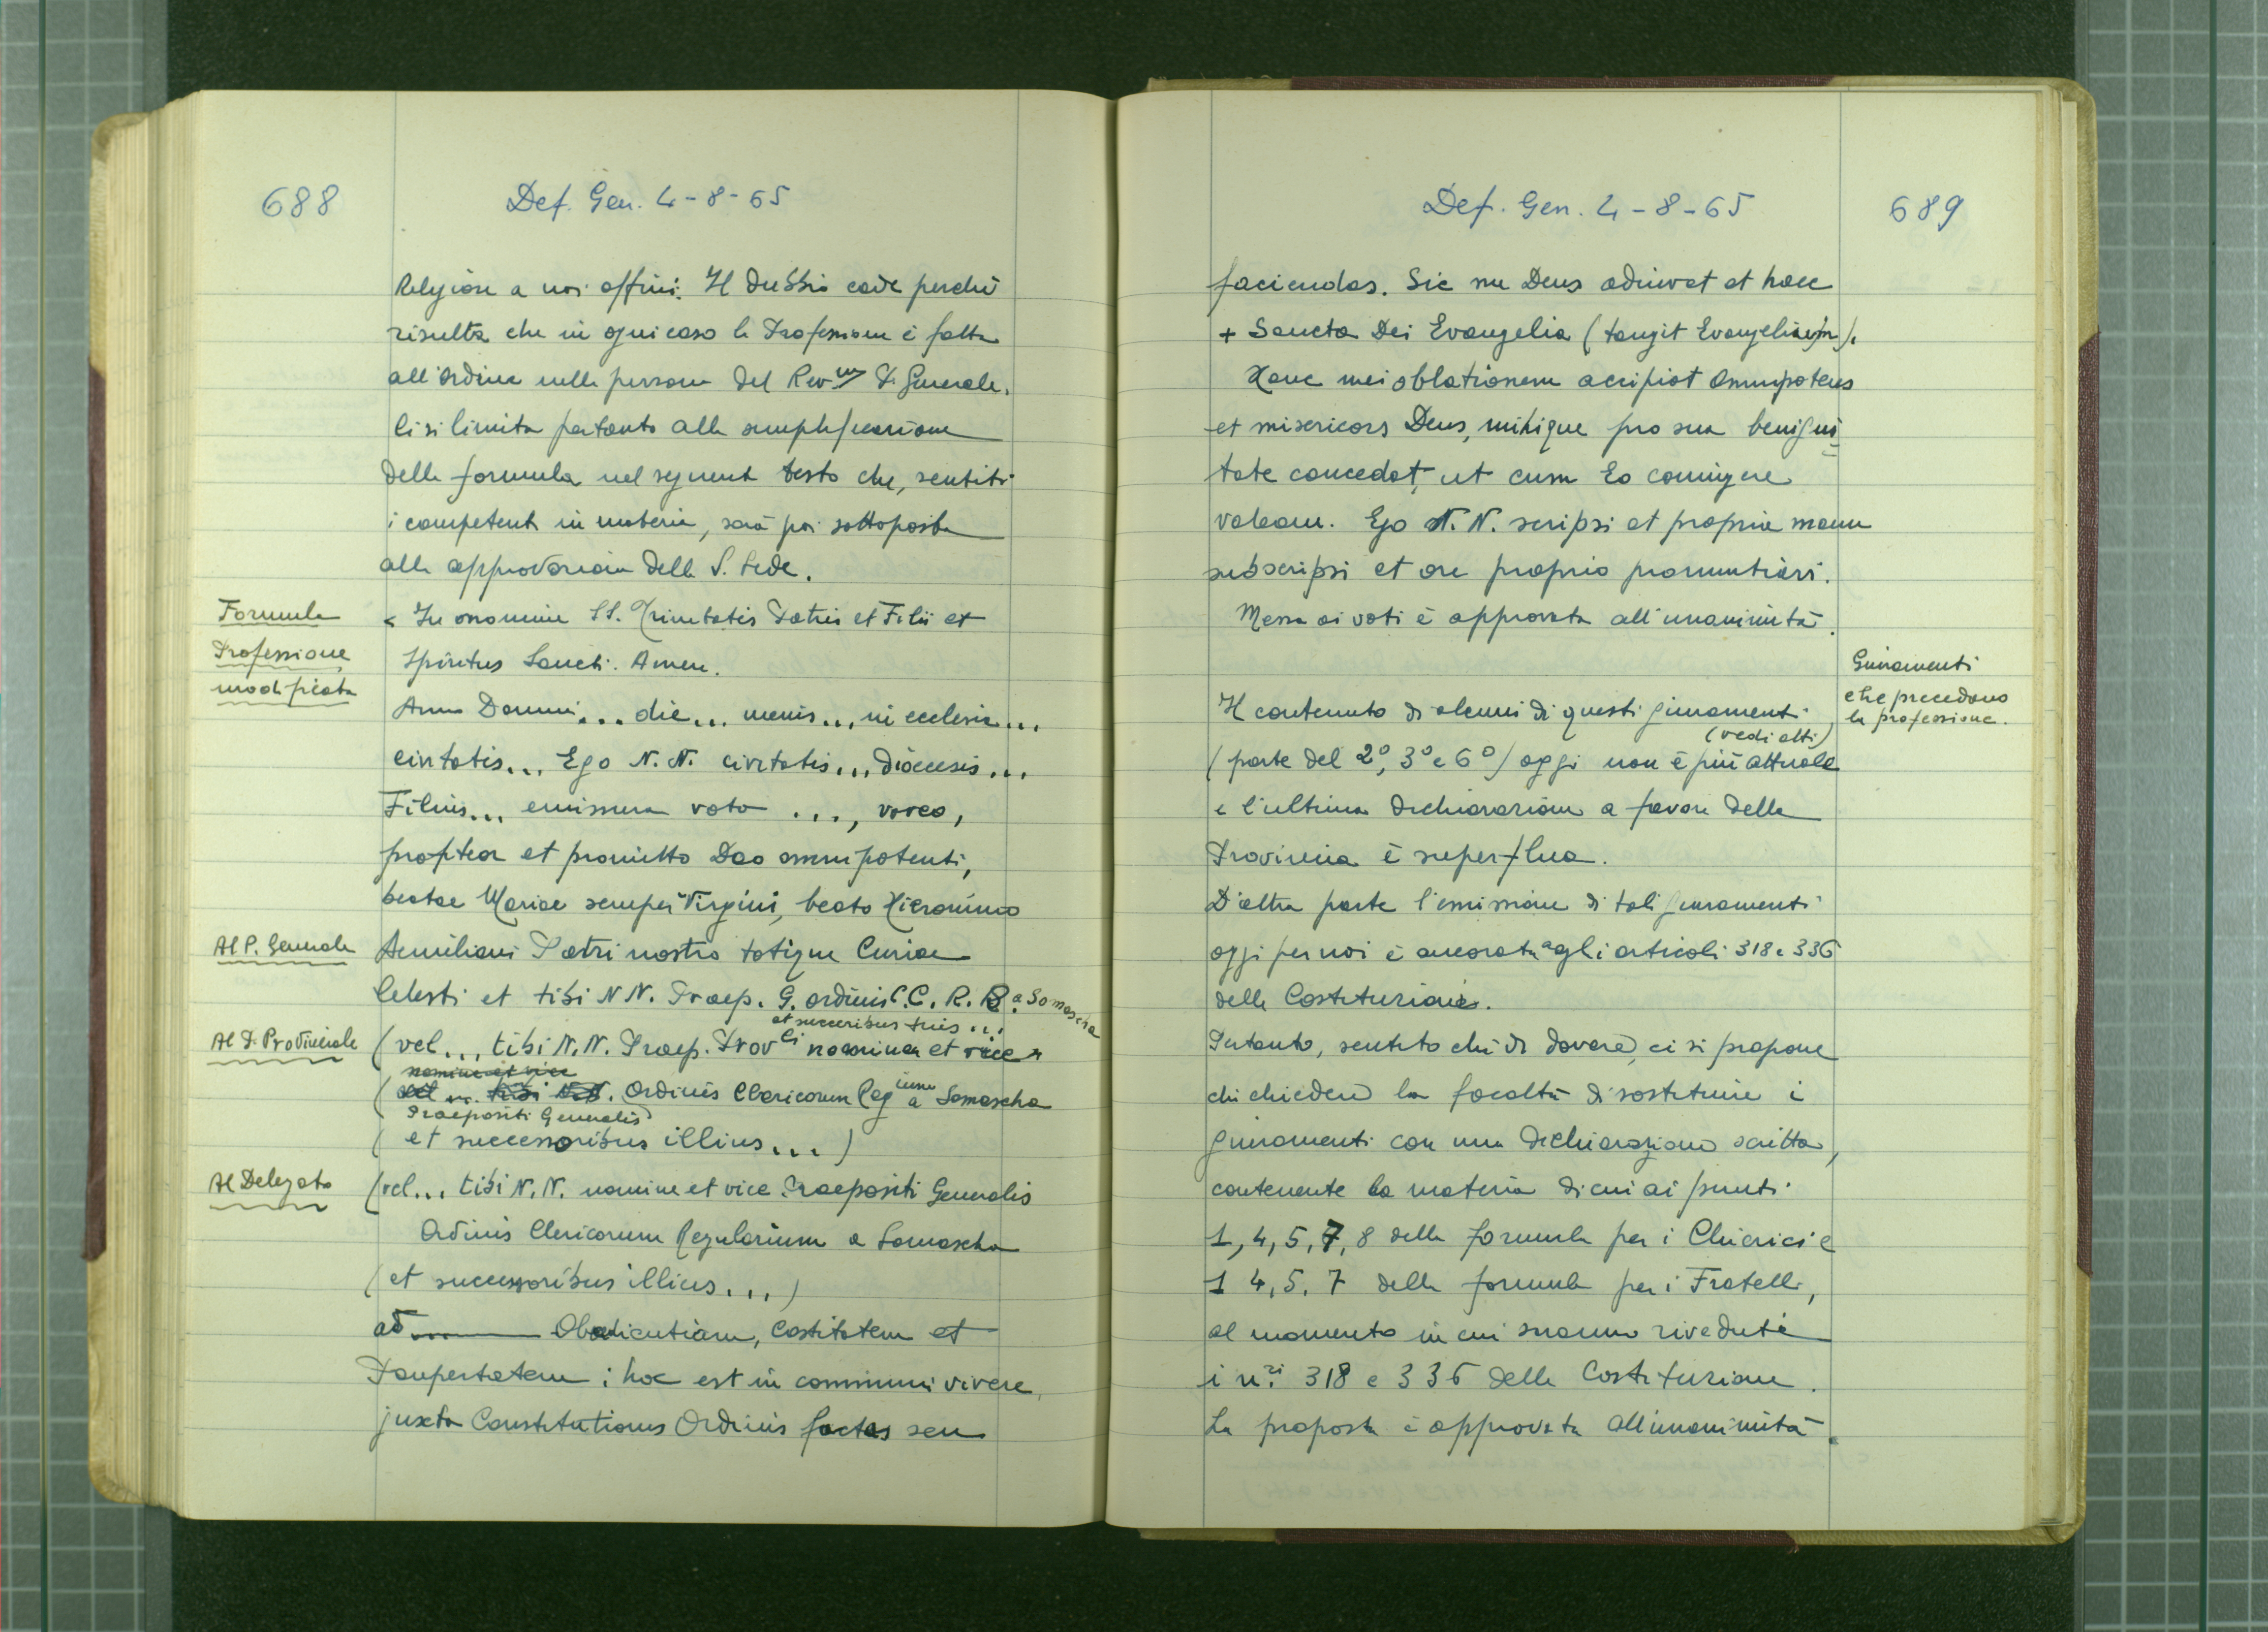 688
Def. Gen. 4-8-65
Religiose a noi affini. Il dubbio cade perchè
risulta che in ogni caso la Professione è fatta
all'Ordine nella persona del Rev.mo P. Generale.
Ci si limita pertanto alla semplificazione
della formula nel seguente testo che, sentiti
i competenti in materia, sarà poi sottoposta
alla approvazione della S. Sede.
Formula
Professione
modificata
< In nomine SS. Trinitatis Patris et Filii et
Spiritus Sancti. Amen.
Anno Domini... die... mensis... in ecclesia...
civitatis... Ego N.N. civitatis... diocesis...
Filius... emissurus vota ..., voveo,
profiteor et promitto Deo omnipotenti,
beatae Mariae semper Virgini, beato Hieronimo
Al P. Generale
Aemiliani Patri nostro totique Curiae
Celesti et tibi N N. Praep. G. ordinis C.C.R.R. a Somascha
et successoribus tuis...
Al P. Provinciale
(vel... tibi N.N. Praep. Prov.li nomine et vice
Praepositi Generalis
Ordinis Clericorum Reg.ium a Somascha
( et successoribus illius... )
Al Delegato
(vel... tibi N.N. nomine et vice Praepositi Generalis
Ordinis Clericorum Regularium a Somascha
(et successoribus illius...)
ad Obedientiam, Castitatem et
Paupertatem; hoc est in communi vivere
juxta Constitutiones Ordinis factas seu
Def. Gen. 4-8-65
689
faciendas. Sic me Deus adiuvet et haec
+ Sancta Dei Evangelia (tangit Evangelium).
Hanc mei oblationem accipiat Omnipotens
et misericors Deus, mihique pro sua benigni
tate concedat, ut cum Eo coniungere
valeam. Ego N.N. scripsi et propria manu
subscripsi et ore proprio pronuntiavi.
Messa ai voti è approvata all'unanimità.
Giuramenti
che precedono
la professione.
Il contenuto di alcuni di questi giuramenti
(vedi atti)
(parte del 2°, 3° e 6°) oggi non è più attuale
e l'ultima dichiarazione a favore della
Provincia è superflua.
D'altra parte l'emissione di tali giuramenti
oggi per noi è ancorata agli articoli 318 e 336
delle Costituzioni.
Pertanto, sentito chi di dovere, ci si propone
di chiedere la facoltà di sostituire i
giuramenti con una dichiarazione scritta,
contenente la materia di cui ai punti
1, 4, 5, 7, 8 della formula per i Chierici e
1 4, 5. 7 della formula per i Fratelli,
al momento in cui saranno rivedute
i n.ri 318 e 336 delle Costituzione.
La proposta è approvata all'unanimità.